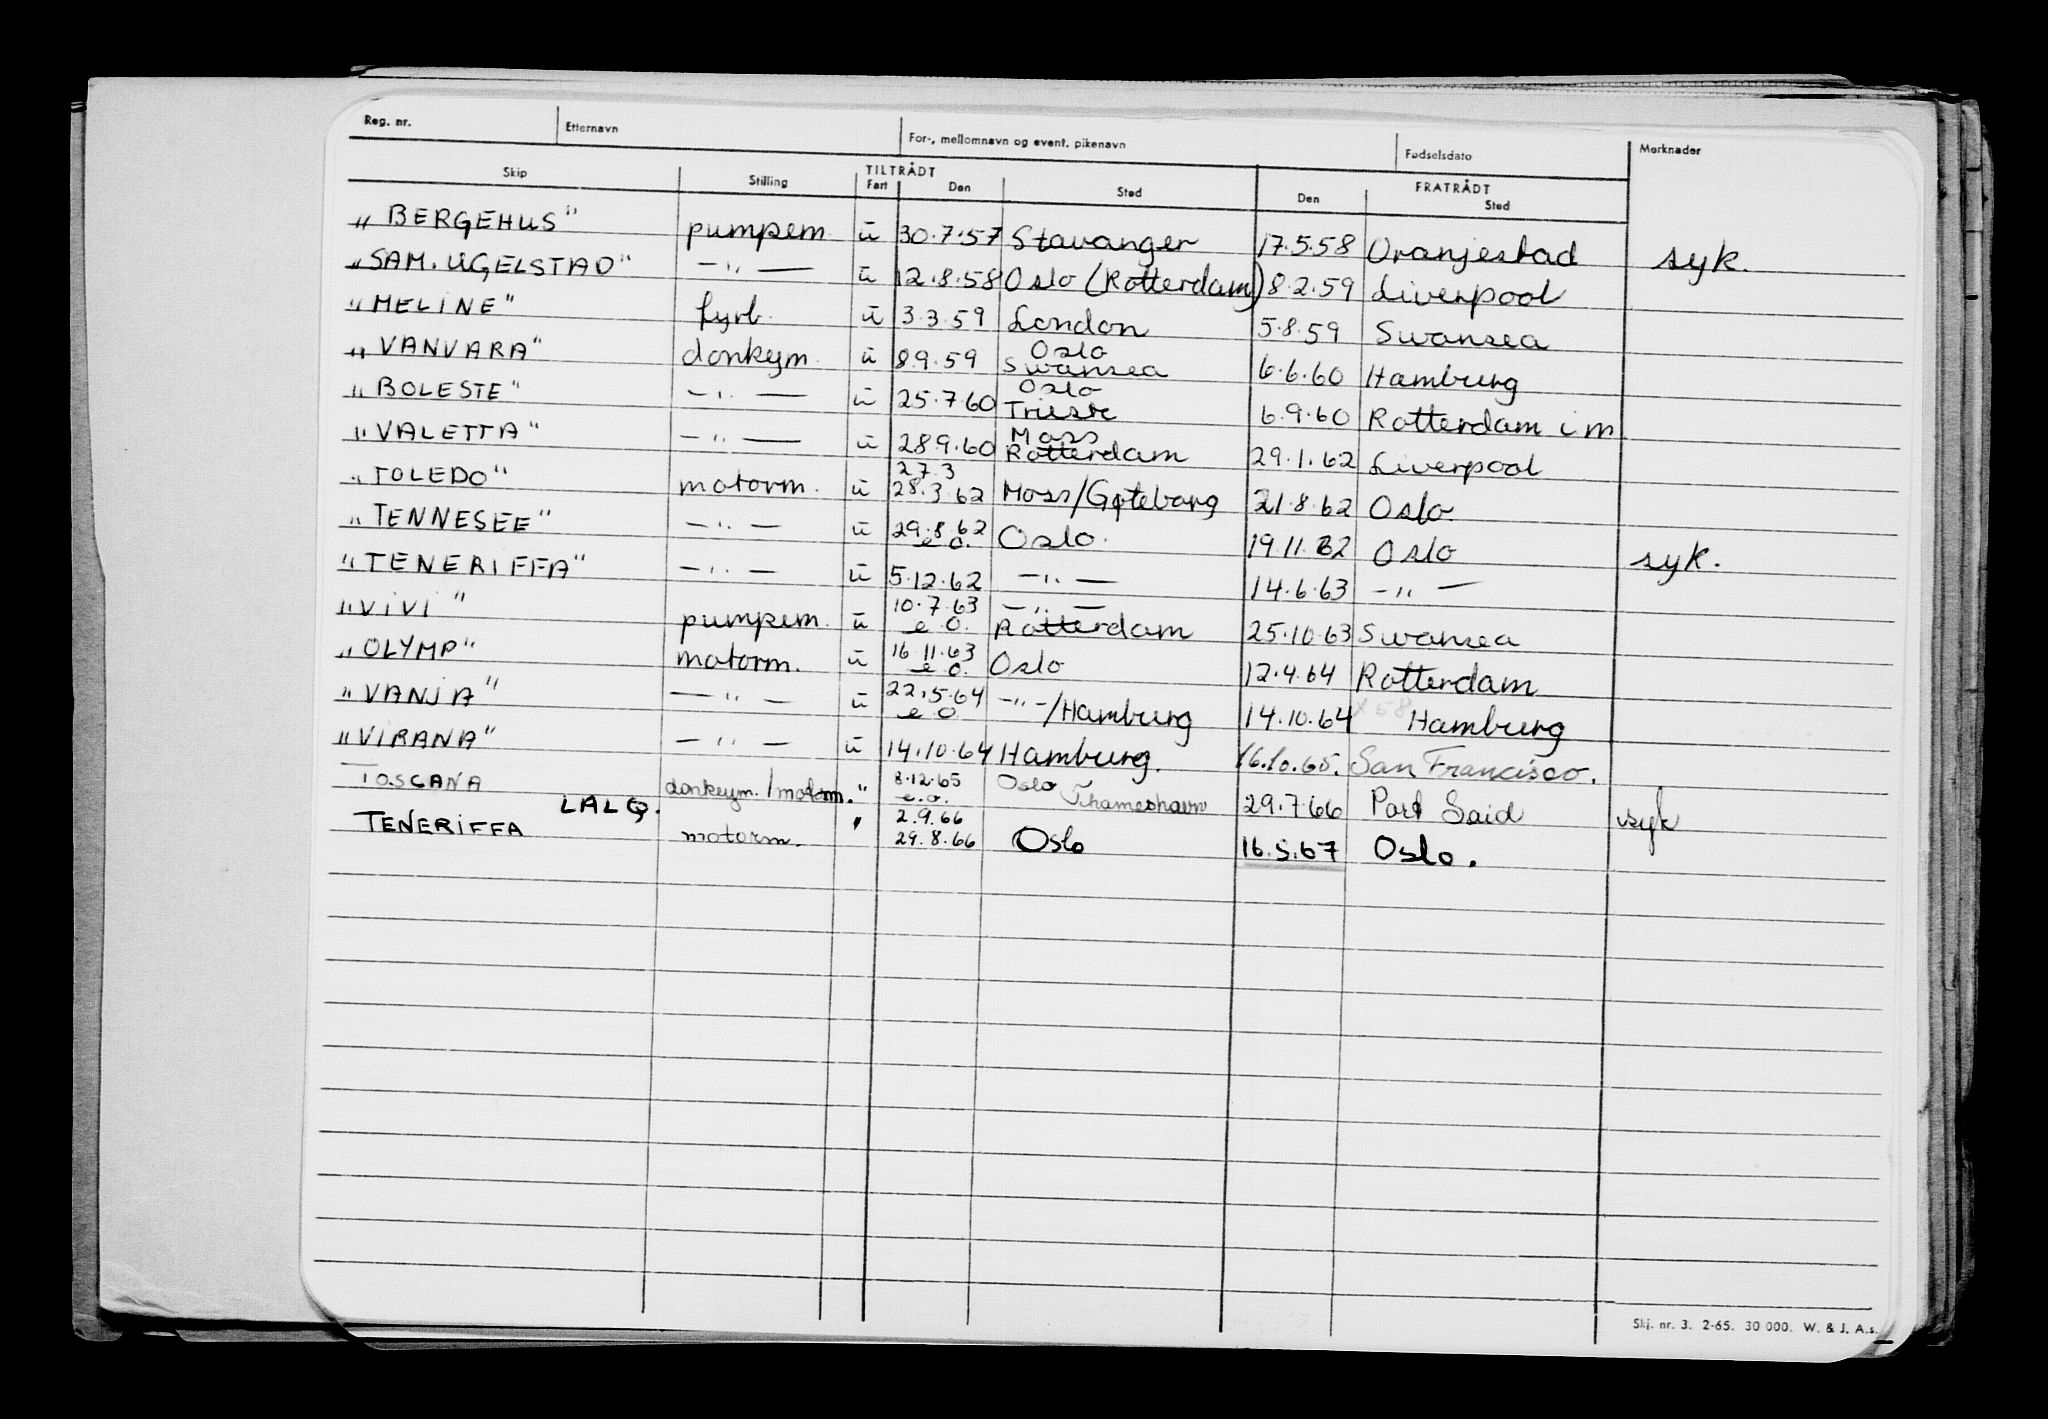 Reg. nr. Etternavn For-, mellomnavn og event. pikenavn Fødselsdato Merknader
TILTRÅDT FRATRÅDT
Skip Stilling Fart Den Sted Den Sted
"BERGEHUS" pumpem. ū 30.7.57 Stavanger 17.5.58 Oranjestad syk.
"SAM. UGELSTAD" —"— ū 12.8.58 Oslo (Rotterdam) 8.2.59 Liverpool
"MELINE" fyrb. ū 3.3.59 London 5.8.59 Swansea
"VANVARA" donkeym. ū 8.9.59 Oslo Swansea 6.6.60 Hamburg
"BOLESTE" —"— ū 25.7.60 Oslo Trieste 6.9.60 Rotterdam i m
"VALETTA" —"— ū 28.9.60 Moss Rotterdam 29.1.62 Liverpool
"TOLEDO" motorm. ū 27.3 28.3.62 Moss/Gøteborg 21.8.62 Oslo
"TENNESEE" —"— ū 29.8.62 e.o. Oslo. 19.11.62 Oslo syk.
"TENERIFFA" —"— ū 5.12.62 —"— 14.6.63 —"—
"VIVI" pumpem. ū 10.7.63 e.o. —"— Rotterdam 25.10.63 Swansea
"OLYMP" motorm. ū 16.11.63 e.o. Oslo 12.4.64 Rotterdam
"VANJA" —"— ū 22.5.64 e.o. —"—/Hamburg 14.10.64 Hamburg
"VIRANA" —"— ū 14.10.64 Hamburg. 16.10.65. San Francisco.
TOSCANA donkeym./motorm. " 8.12.65 e.o. Oslo Thameshavn 29.7.66 Port Said syk
LALQ. 2.9.66
TENERIFFA motorm. " 29.8.66 Oslo 16.5.67 Oslo.
Skj. nr. 3. 2-65. 30 000. W. & J. A.s.